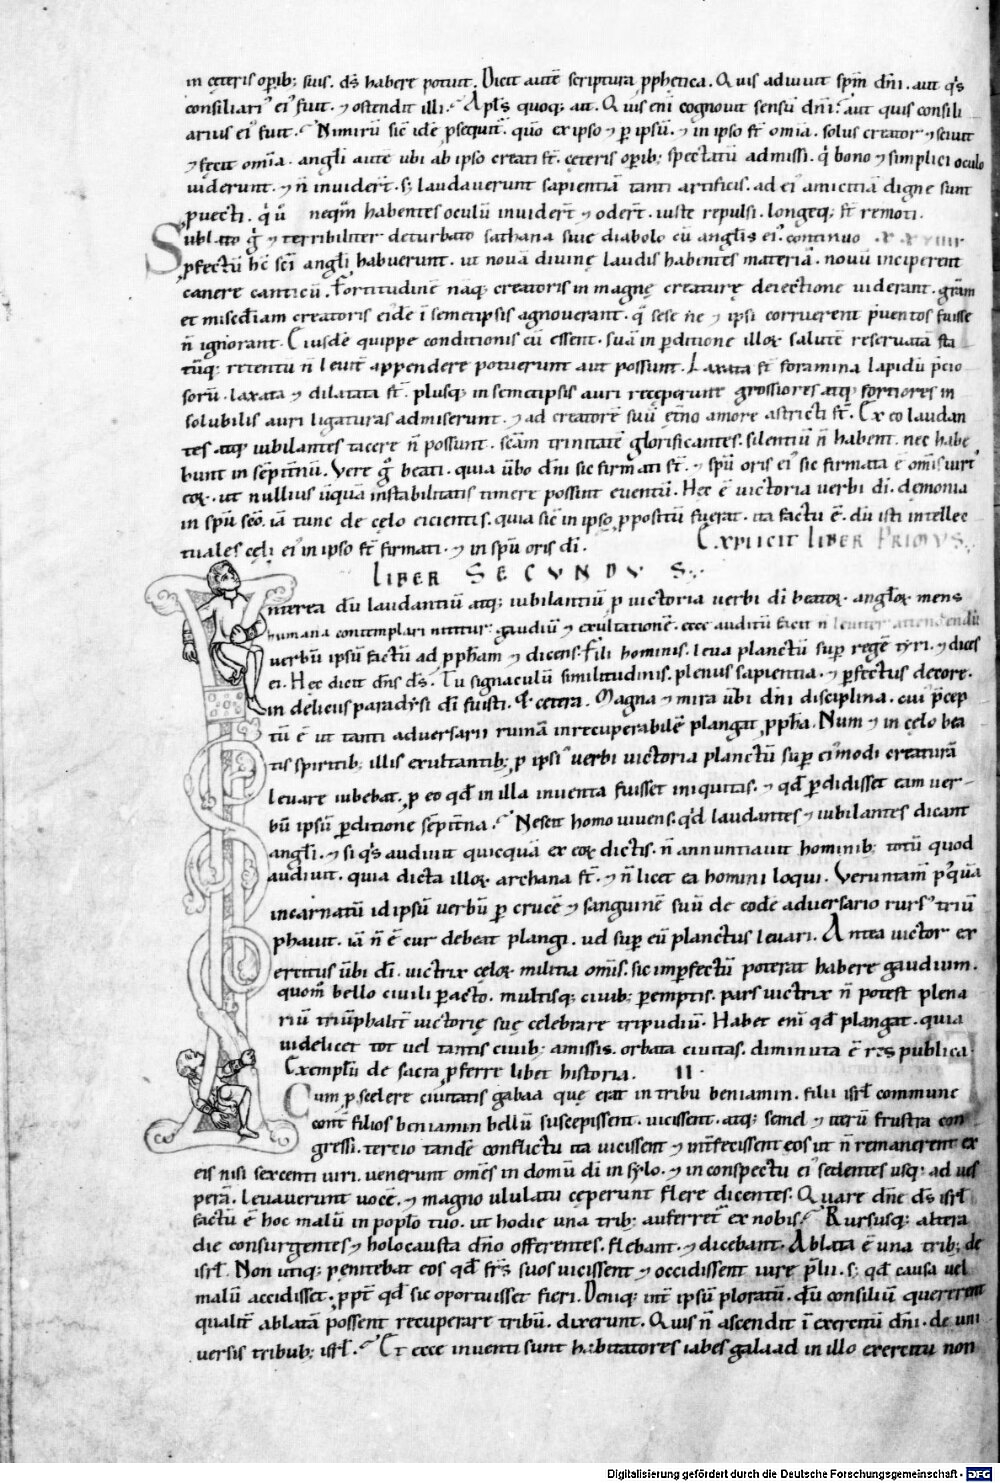 in cęteris opib; suis. ds̄ habere potuit. Dicit autē scriptura ꝓphetica. Quis adiuuit spm̄ dn̄i. aut qͥs
consiliariꝰ eiꝰ fuit. ⁊ ostendit illi. Apl̄s quoq; ait. Quis eni cognouit sensū dn̄i. aut quis consili
arius eiꝰ fuit. Nimirū sic̄ idē ꝓsequit᷑. quō ex ipso ⁊ ꝑ ipsū. ⁊ in ipso st̄ omīa. solus creator ⁊ sciuit
⁊ fecit omīa. angl̄i autē ubi ab ipso creati st̄. cęteris opib; spectatū admissi. qͥ bono ⁊ simplici oculo
uiderunt. ⁊ n̄ inuider̄t. s; laudauerunt sapientiā tanti artificis. ad eiꝰ amicitiā digne sunt
ꝓuecti. qͥ u̾o neqͣm habentes oculū inuider̄t ⁊ oder̄t. iuste repulsi. longeq; st̄ remoti.
Sublato g̊ ⁊ terribiliter deturbato sathana siue diabolo cū angl̄is eiꝰ. continuo
ꝓfectū hc̄ sc̄i angl̄i habuerunt. ut nouā diuinę laudis habentes materiā. nouū inciperent
canere canticū. Fortitudinē naq; creatoris in magnę creaturę deiectione uiderant. gr̄am
et misēdiam creatoris eidē ī semetipsis agnouerant. qͣ sese ne ⁊ ipsi corruerent p̄uentos fuisse
n̄ ignorant. Eiusdē quippe conditionis cū essent. suā in ꝑditione illoꝝ salutē reseruatā sta
tūq; retentū n̄ leuit̄ appendere potuerunt aut possunt. Laxata st̄ foramina lapidū p̄cio
sorū. laxata ⁊ dilatata st̄. plusq; in semetipsis auri receperunt grossiores atq; fortiores in
solubilis auri ligaturas admiserunt. ⁊ ad creatorē suū et̄no amore astricti st̄. Ex eo laudan
tes atq; iubilantes tacere n̄ possunt. sc̄am trinitatē glorificantes. silentiū n̄ habent. nec habe
bunt in sēpit̄nū. Vere g̊ beati. quia ūbo dn̄i sic firmati st̄. ⁊ spū oris eiꝰ sic firmata ē om̄is uirtꝰ
eoꝝ. ut nullius ūquā instabilitatis timere possint euentū. Hec ē uictoria uerbi dī. dęmonia
in spū sc̄o. iā tunc de cęlo eicientis. quia sic̄ in ipso ꝓpositū fuerat. ita factū ē. dū isti intellec
tuales cęli eiꝰ in ipso st̄ firmati. ⁊ in spū oris dī. EXPLICIT LIBER PRIMVS.
LIBER SECVNDVS.
Interea dū laudantiū atq; iubilantiū ꝓ uictoria uerbi dī beatoꝝ angl̄oꝝ mens
humana contemplari nititur. gaudiū ⁊ exultationē. ecce auditū facit n̄ leuiter attendendū
uerbū ipsū factū ad ꝓph̄am ⁊ dicens. Fili hominis. leua planctū sup̄ regē tyri. ⁊ dices
ei. Hęc dicit dn̄s ds̄. Tu signaculū similitudinis. plenus sapientia. ⁊ ꝑfectus decore.
in deliciis paradysi dī fuisti. Et cetera. Magna ⁊ mira ūbi dn̄i disciplina. cuiꝰ p̄cep
tū ē ut tanti aduersarii ruinā inrecuperabilē plangat ꝓph̄a. Num ⁊ in cęlo bea
tis spiritib; illis exultantib; ꝓ ipsiꝰ uerbi uictoria planctū sup̄ eiꝰmodi creaturā
leuare iubebat. ꝓ eo qd̄ in illa inuenta fuisset iniquitas. ⁊ qd̄ ꝑdidisset eam uer-
bū ipsum ꝑditione sēpit̄na. Nescit homo uiuens. qͥd laudantes ⁊ iubilantes dicant
angl̄i. ⁊ si qͥs audiuit quicquā ex eoꝝ dictis. n̄ annuntiauit hominib; totū quod
audiuit. quia dicta illoꝝ archana st̄. ⁊ n̄ licet ea homini loqui. Veruntam̄ pꝰquā
incarnatū id ipsū uerbū ꝑ crucē ⁊ sanguinē suū de eodē aduersario rursꝰ triū
phauit. iā n̄ ē cur debeat plangi. ul̄ sup̄ eū planctus leuari. Antea uictor ex
ercitus ūbi dī. uictrix cęloꝝ militia om̄is. sic imꝑfectū poterat habere gaudium.
quom̄ bello ciuili ꝑacto. multisq; ciuib; ꝑemptis. pars uictrix n̄ potest plena
riū triūphalit̄ uictorię suę celebrare tripudiū. Habet eni qd̄ plangat. quia
uidelicet tot uel tantis ciuib; amissis. orbata ciuitas. diminuta ē res publica.
Exemplū de sacra ꝓferre libet historia. II.
Cum ꝓ scelere ciuitatis gabaa quę erat in tribu beniamin. filii isrl̄ commune
cont̄ filios beniamin bellū suscepissent. uicissent. atq; semel ⁊ iterū frustra con
gressi. tercio tandē conflictu ita uicissent ⁊ int̄fecissent eos ut n̄ remanerent ex
eis nisi sexcenti uiri. uenerunt om̄es in domū dī in sylo. ⁊ in conspectu eiꝰ sedentes usq; ad ues
perā. leuauerunt uocē. ⁊ magno ululatu cęperunt flere dicentes. Quare dn̄e ds̄ isrl̄
factū ē hoc malū in poplo tuo. ut hodie una trib; auferret᷑ ex nobis. Rursusq; altera
die consurgentes ⁊ holocausta dn̄o offerentes. flebant. ⁊ dicebant. Ablata ē una trib; de
isrl̄. Non utiq; pęnitebat eos qd̄ frs̄ suos uicissent ⁊ occidissent iure p̄lii. s; qd̄ causa uel
malū accidisset. ꝓpt̄ qd̄ sic oportuisset fieri. Deniq; int̄ ipsū ploratū. qͣdū consiliū quererent
qualit̄ ablatā possent recuperare tribū. dixerunt. Quis n̄ ascendit ī exercitū dn̄i. de uni
uersis tribub; isrl̄. Et ecce inuenti sunt habitatores iabes galaad in illo exercitu non
Digitalisierung gefördert durch die Deutsche Forschungsgemeinschaft - DFG